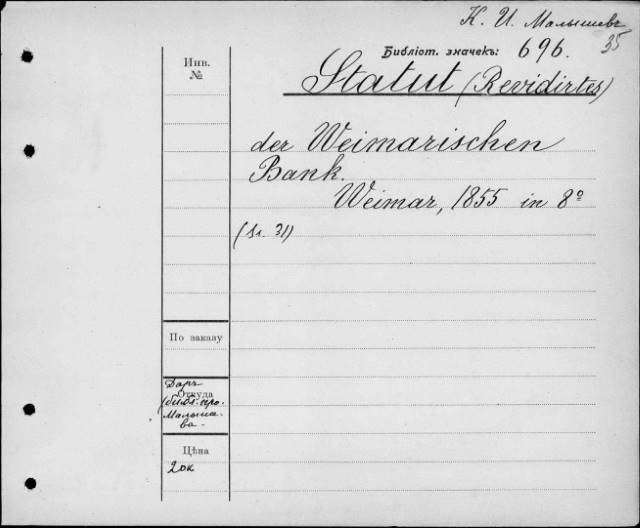 К. И. Малышевъ
35
Библіот. значекъ: 696.
Инв.
№
Statut (Revidirtes)
der Weimarischen
Bank.
Weimar, 1855 in 8º
31)
По заказу
Даръ
Откуда
Малыше-
ва
Цѣна
20к